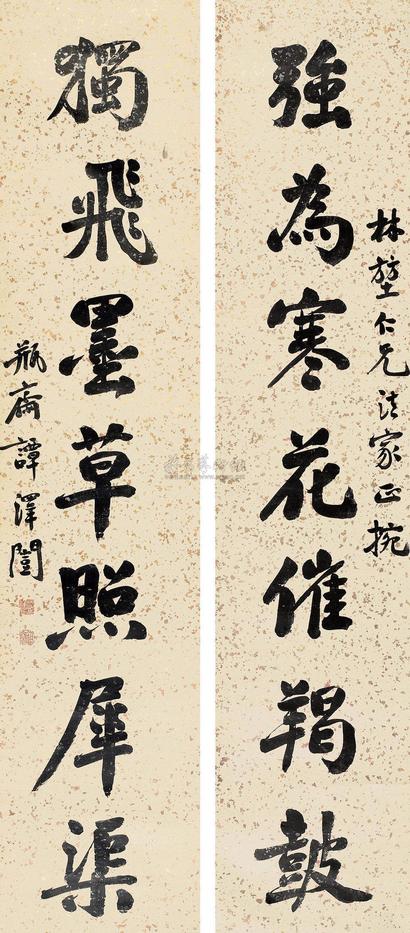 林堃仁兄法家正捥
強為寒花催羯鼓
獨飛墨草照犀渠
瓶齋譚澤闓